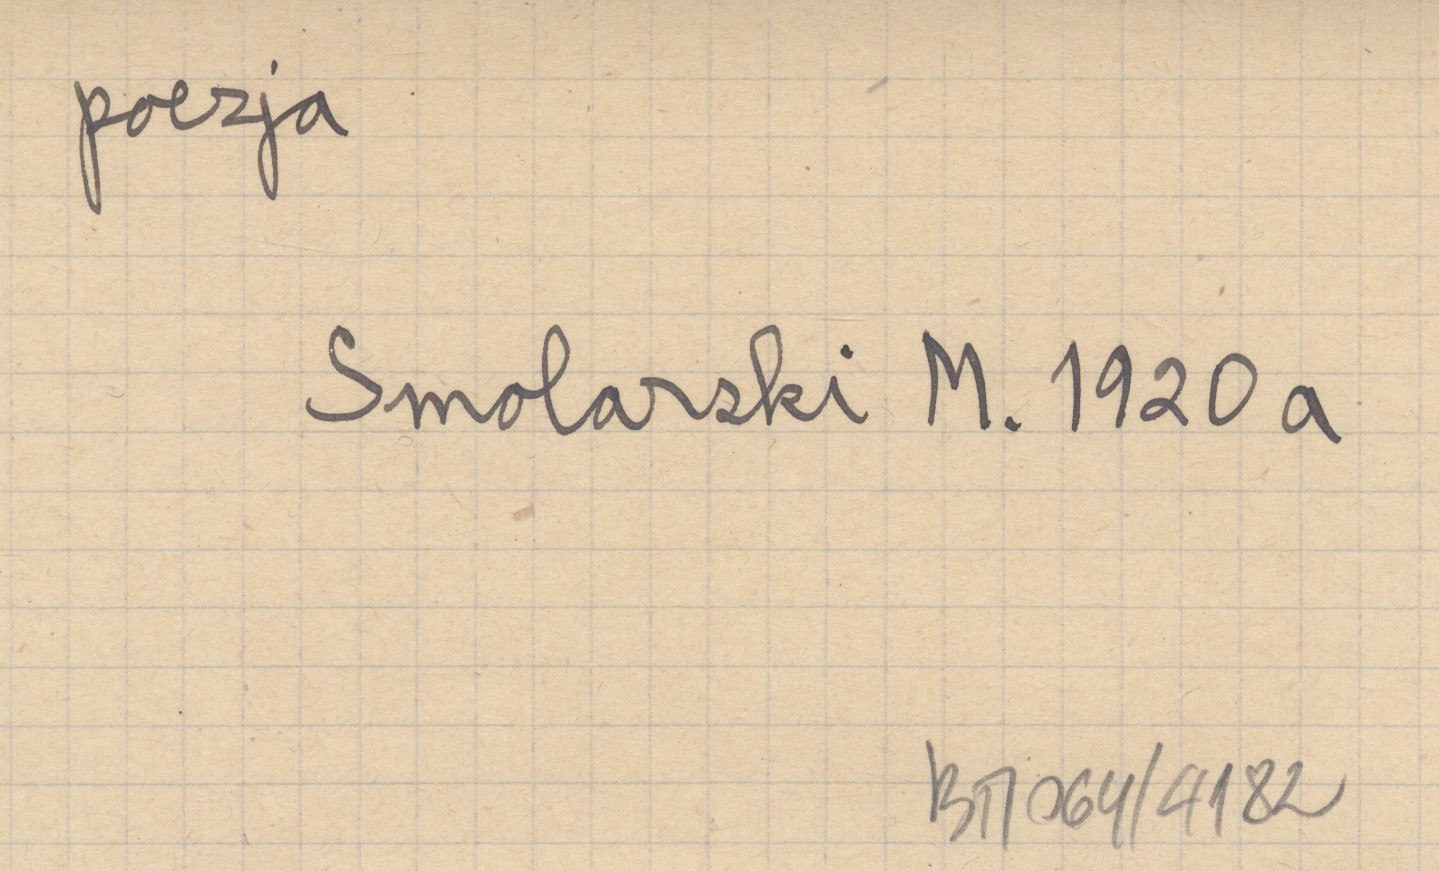 poezja
Smolarski M. 1920 a
ВП 064/4182